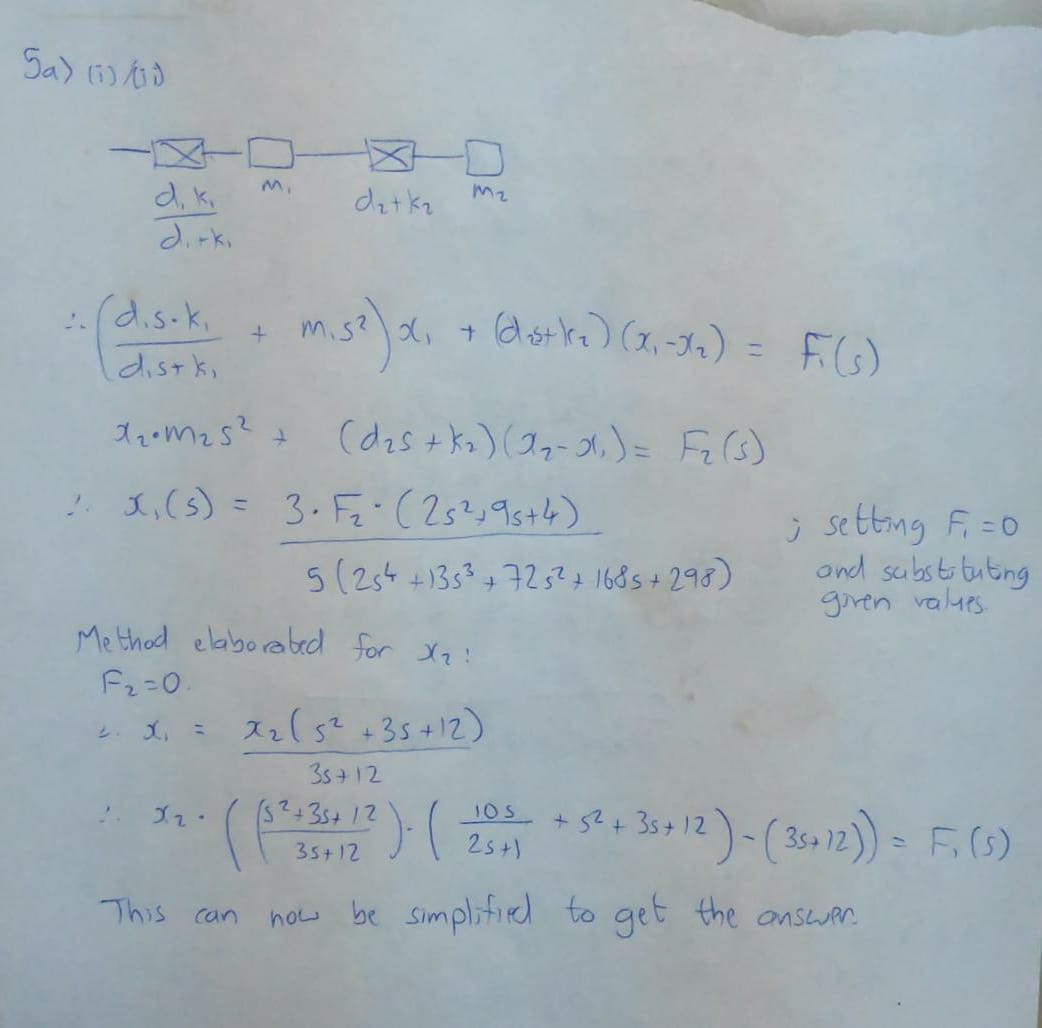 5a) (i)/(ii)
m₁ m₂
d₁k₁/(d₁+k₁) d₂+k₂
∴ (d₁s·k₁/(d₁s+k₁) + m₁s²)x₁ + (d₂s+k₂)(x₁-x₂) = F₁(s)
x₂·m₂s² + (d₂s+k₂)(x₂-x₁) = F₂(s)
∴ x₁(s) = 3·F₂·(2s²+9s+4)/5(2s⁴+13s³+72s²+168s+298) ; setting F₁=0
and substituting
given values.
Method elaborated for x₂:
F₂=0.
∴ x₁ = x₂(s²+3s+12)/3s+12
∴ x₂·((s²+3s+12/3s+12)·(10s/2s+1 + s²+3s+12)-(3s+12)) = F₁(s)
This can now be simplified to get the answer.